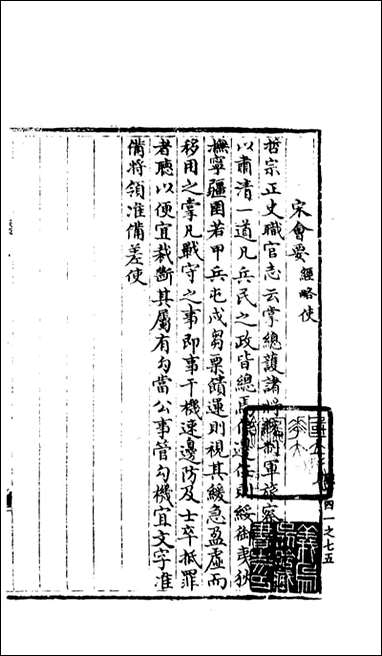 宋會要 經略使
哲宗正史職官志云掌總護諸將統制軍旅察
以肅清一道凡兵民之政皆總焉　邊任則綏御夷狄
撫寧疆圉若甲兵屯戍芻粟饋運則視其緩急盈虛而
移用之掌凡戰守之事即事干機速邊防及士卒抵罪
者聽以便宜裁斷其屬有勾當公事管勾機宜文字准
備將領准備差使
四一之七五